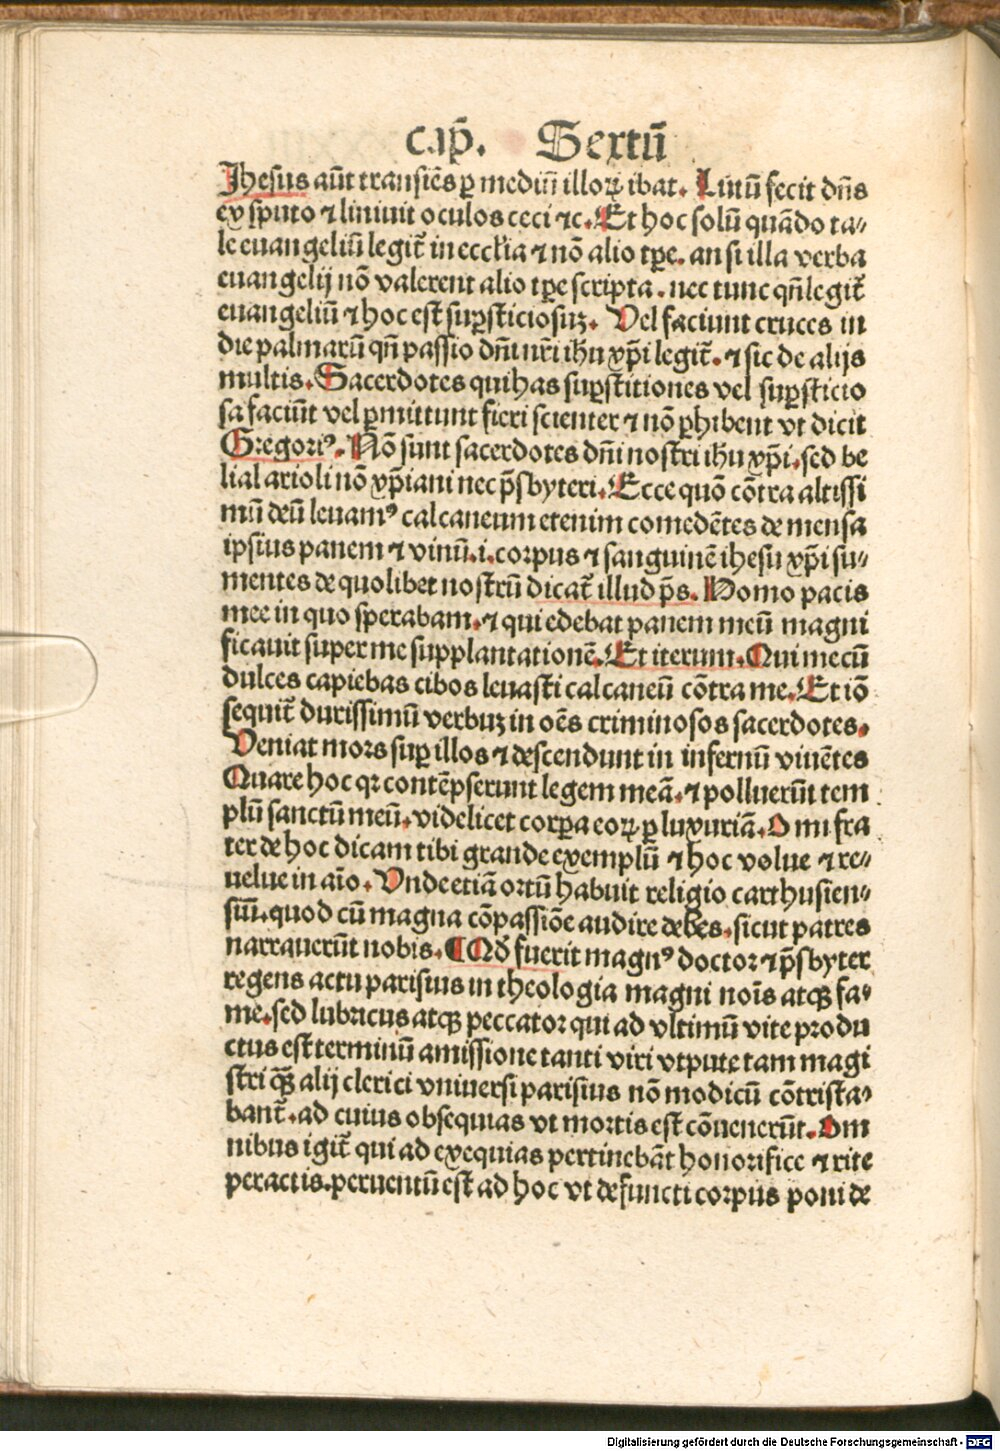 Cap̄. Sextū
Jhesus aūt transiēs ꝑ mediū illoꝝ ibat. Linū fecit dn̄s
ex sputo ⁊ liniuit oculos ceci ⁊c. Et hoc solū quādo ta⸗
le euangeliū legit̄ in eccl̄ia ⁊ nō alio tꝑe. an si illa verba
euangelij nō valerent alio tꝑe scripta. nec tunc qn̄ legit̄
euangeliū ⁊ hoc est suꝑsticiosuꝫ. Vel faciunt cruces in
die palmarū qn̄ passio dn̄i nr̄i ihu xp̄i legit̄. ⁊ sic de alijs
multis. Sacerdotes qui has suꝑstitiones vel suꝑsticio
sa faciūt vel ꝑmittunt fieri scienter ⁊ nō ꝓhibent vt dicit
Gregoriꝰ. Nō sunt sacerdotes dn̄i nostri ihu xp̄i. sed be
lial arioli nō xp̄iani nec p̄sbyteri. Ecce quō cōtra altissi
mū deū leuamꝰ calcaneum etenim comedētes de mensa
ipsius panem ⁊ vinū .i. corpus ⁊ sanguinē ihesu xp̄i su⸗
mentes de quolibet nostrū dicat̄ illud p̄s. Homo pacis
mee in quo sperabam. ⁊ qui edebat panem meū magni
ficauit super me supplantationē. Et iterum. Qui mecū
dulces capiebas cibos leuasti calcaneū cōtra me. Et iō
sequit̄ durissimū verbuꝫ in oēs criminosos sacerdotes.
Veniat mors suꝑ illos ⁊ descendunt in infernū viuētes
Quare hoc qꝛ contēpserunt legem meā. ⁊ polluerūt tem
plū sanctū meū. videlicet corꝑa eoꝝ ꝑ luxuriā. O mi fra
ter de hoc dicam tibi grande exemplū ⁊ hoc volue ⁊ re⸗
uelue in aīo. Vnde etiā ortū habuit religio carthusien⸗
siū. quod cū magna cōpassiōe audire debes. sicut patres
narrauerūt nobis. ¶ Qd̄ fuerit magnꝰ doctor ⁊ p̄sbyter
regens actu parisius in theologia magni noīs atqꝫ fa⸗
me. sed lubricus atqꝫ peccator qui ad vltimū vite produ
ctus est terminū amissione tanti viri vtpute tam magi
stri qꝫ alij clerici vniuersi parisius nō modicū cōtrista⸗
bant̄. ad cuius obsequias vt mortis est cōuenerūt. Om
nibus igit̄ qui ad exequias pertinebāt honorifice ⁊ rite
peractis. peruentū est ad hoc vt defuncti corpus poni de
Digitalisierung gefördert durch die Deutsche Forschungsgemeinschaft - DFG